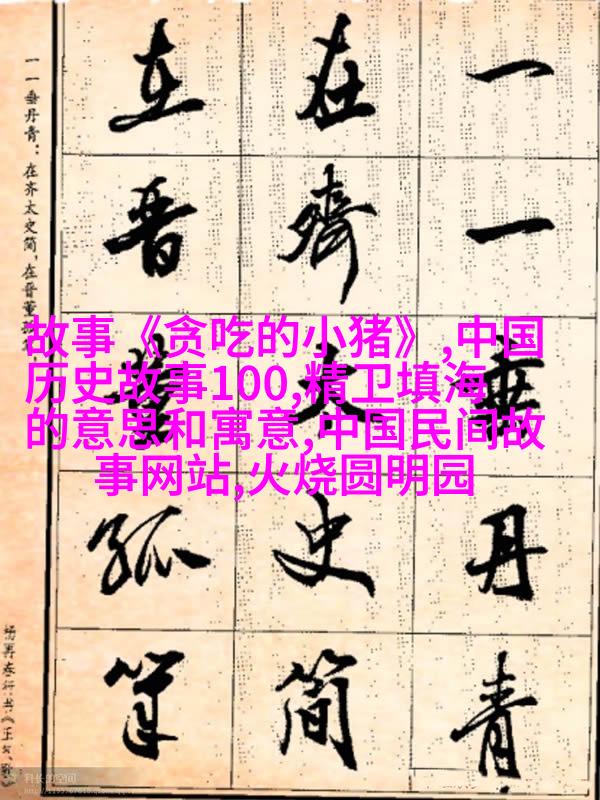 一一垂丹青
在齊太史简
在晋董狐筆
故事《贪吃的小猪》,中国
历史故事100,精卫填海
的意思和寓意,中国民间故
事网站,火烧圆明园
一一垂丹青：在齐太史简,在晋董
杨再春行书《正气
科长的空间